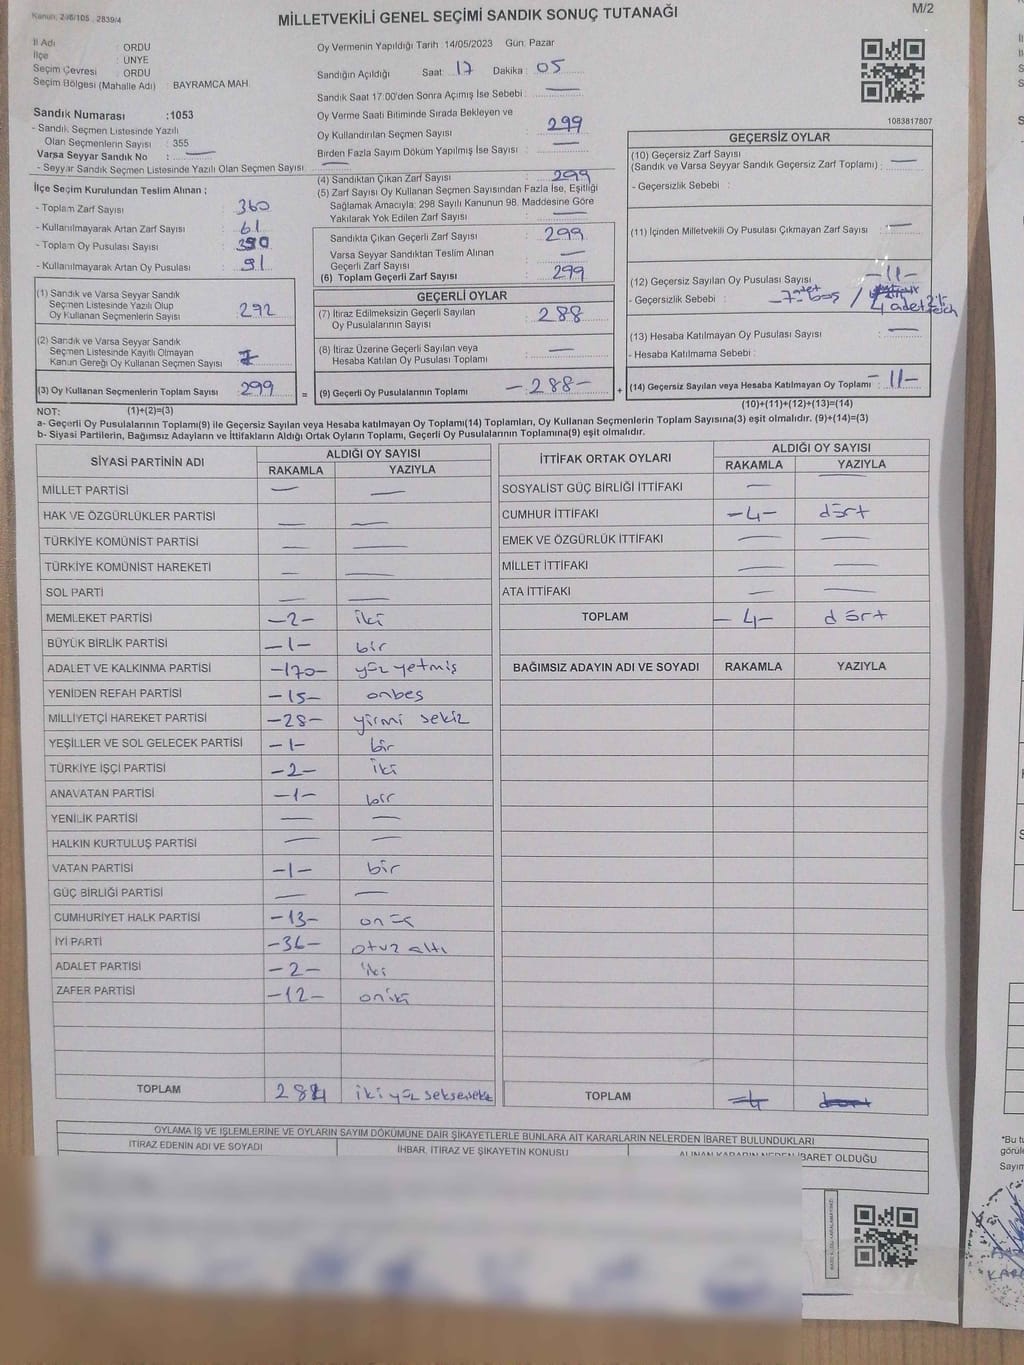 Kanun: 298/105 , 2839/4
MİLLETVEKİLİ GENEL SEÇİMİ SANDIK SONUÇ TUTANAĞI
M/2
İl Adı : ORDU
İlçe : ÜNYE
Seçim Çevresi : ORDU
Seçim Bölgesi (Mahalle Adı) : BAYRAMCA MAH.
Sandık Numarası :1053
- Sandık Seçmen Listesinde Yazılı
Olan Seçmenlerin Sayısı : 355
Varsa Seyyar Sandık No : —
- Seyyar Sandık Seçmen Listesinde Yazılı Olan Seçmen Sayısı —
İlçe Seçim Kurulundan Teslim Alınan ;
- Toplam Zarf Sayısı : 360
- Kullanılmayarak Artan Zarf Sayısı : 61
- Toplam Oy Pusulası Sayısı : 390
- Kullanılmayarak Artan Oy Pusulası : 91
(1) Sandık ve Varsa Seyyar Sandık
Seçmen Listesinde Yazılı Olup
Oy Kullanan Seçmenlerin Sayısı : 292
(2) Sandık ve Varsa Seyyar Sandık
Seçmen Listesinde Kayıtlı Olmayan
Kanun Gereği Oy Kullanan Seçmen Sayısı : 7
(3) Oy Kullanan Seçmenlerin Toplam Sayısı : 299
Oy Vermenin Yapıldığı Tarih :14/05/2023 Gün: Pazar
Sandığın Açıldığı Saat: 17 Dakika : 05
Sandık Saat 17:00'den Sonra Açımış İse Sebebi : —
Oy Verme Saati Bitiminde Sırada Bekleyen ve
Oy Kullandırılan Seçmen Sayısı : 299
Birden Fazla Sayım Döküm Yapılmış İse Sayısı : —
(4) Sandıktan Çıkan Zarf Sayısı : 299
(5) Zarf Sayısı Oy Kullanan Seçmen Sayısından Fazla İse, Eşitliği
Sağlamak Amacıyla; 298 Sayılı Kanunun 98. Maddesine Göre
Yakılarak Yok Edilen Zarf Sayısı : —
Sandıkta Çıkan Geçerli Zarf Sayısı : 299
Varsa Seyyar Sandıktan Teslim Alınan
Geçerli Zarf Sayısı : —
(6) Toplam Geçerli Zarf Sayısı : 299
GEÇERLİ OYLAR
(7) İtiraz Edilmeksizin Geçerli Sayılan
Oy Pusulalarının Sayısı : 288
(8) İtiraz Üzerine Geçerli Sayılan veya
Hesaba Katılan Oy Pusulası Toplamı : —
= (9) Geçerli Oy Pusulalarının Toplamı -288-
1083817807
GEÇERSİZ OYLAR
(10) Geçersiz Zarf Sayısı
(Sandık ve Varsa Seyyar Sandık Geçersiz Zarf Toplamı) : —
- Geçersizlik Sebebi :
(11) İçinden Milletvekili Oy Pusulası Çıkmayan Zarf Sayısı : —
(12) Geçersiz Sayılan Oy Pusulası Sayısı : -11-
- Geçersizlik Sebebi : 7 adet boş / 4 adet
(13) Hesaba Katılmayan Oy Pusulası Sayısı : —
- Hesaba Katılmama Sebebi :
+ (14) Geçersiz Sayılan veya Hesaba Katılmayan Oy Toplamı : -11-
NOT: (1)+(2)=(3)
(10)+(11)+(12)+(13)=(14)
a- Geçerli Oy Pusulalarının Toplamı(9) ile Geçersiz Sayılan veya Hesaba katılmayan Oy Toplamı(14) Toplamları, Oy Kullanan Seçmenlerin Toplam Sayısına(3) eşit olmalıdır. (9)+(14)=(3)
b- Siyasi Partilerin, Bağımsız Adayların ve İttifakların Aldığı Ortak Oyların Toplamı, Geçerli Oy Pusulalarının Toplamına(9) eşit olmalıdır.
SİYASİ PARTİNİN ADI ALDIĞI OY SAYISI
RAKAMLA YAZIYLA
MİLLET PARTİSİ — —
HAK VE ÖZGÜRLÜKLER PARTİSİ — —
TÜRKİYE KOMÜNİST PARTİSİ — —
TÜRKİYE KOMÜNİST HAREKETİ — —
SOL PARTİ — —
MEMLEKET PARTİSİ -2- iki
BÜYÜK BİRLİK PARTİSİ -1- bir
ADALET VE KALKINMA PARTİSİ -170- yüz yetmiş
YENİDEN REFAH PARTİSİ -15- onbeş
MİLLİYETÇİ HAREKET PARTİSİ -28- yirmi sekiz
YEŞİLLER VE SOL GELECEK PARTİSİ -1- bir
TÜRKİYE İŞÇİ PARTİSİ -2- iki
ANAVATAN PARTİSİ -1- bir
YENİLİK PARTİSİ — —
HALKIN KURTULUŞ PARTİSİ — —
VATAN PARTİSİ -1- bir
GÜÇ BİRLİĞİ PARTİSİ — —
CUMHURİYET HALK PARTİSİ -13- onüç
İYİ PARTİ -36- otuz altı
ADALET PARTİSİ -2- iki
ZAFER PARTİSİ -12- oniki
TOPLAM 284 ikiyüz
İTTİFAK ORTAK OYLARI ALDIĞI OY SAYISI
RAKAMLA YAZIYLA
SOSYALIST GÜÇ BİRLİĞİ İTTİFAKI — —
CUMHUR İTTİFAKI -4- dört
EMEK VE ÖZGÜRLÜK İTTİFAKI — —
MİLLET İTTİFAKI — —
ATA İTTİFAKI — —
TOPLAM -4- dört
BAĞIMSIZ ADAYIN ADI VE SOYADI RAKAMLA YAZIYLA
TOPLAM 4 dört
OYLAMA İŞ VE İŞLEMLERİNE VE OYLARIN SAYIM DÖKÜMÜNE DAİR ŞİKAYETLERLE BUNLARA AİT KARARLARIN NELERDEN İBARET BULUNDUKLARI
İTİRAZ EDENİN ADI VE SOYADI İHBAR, İTİRAZ VE ŞİKAYETİN KONUSU ALINAN KARARIN NEDEN İBARET OLDUĞU